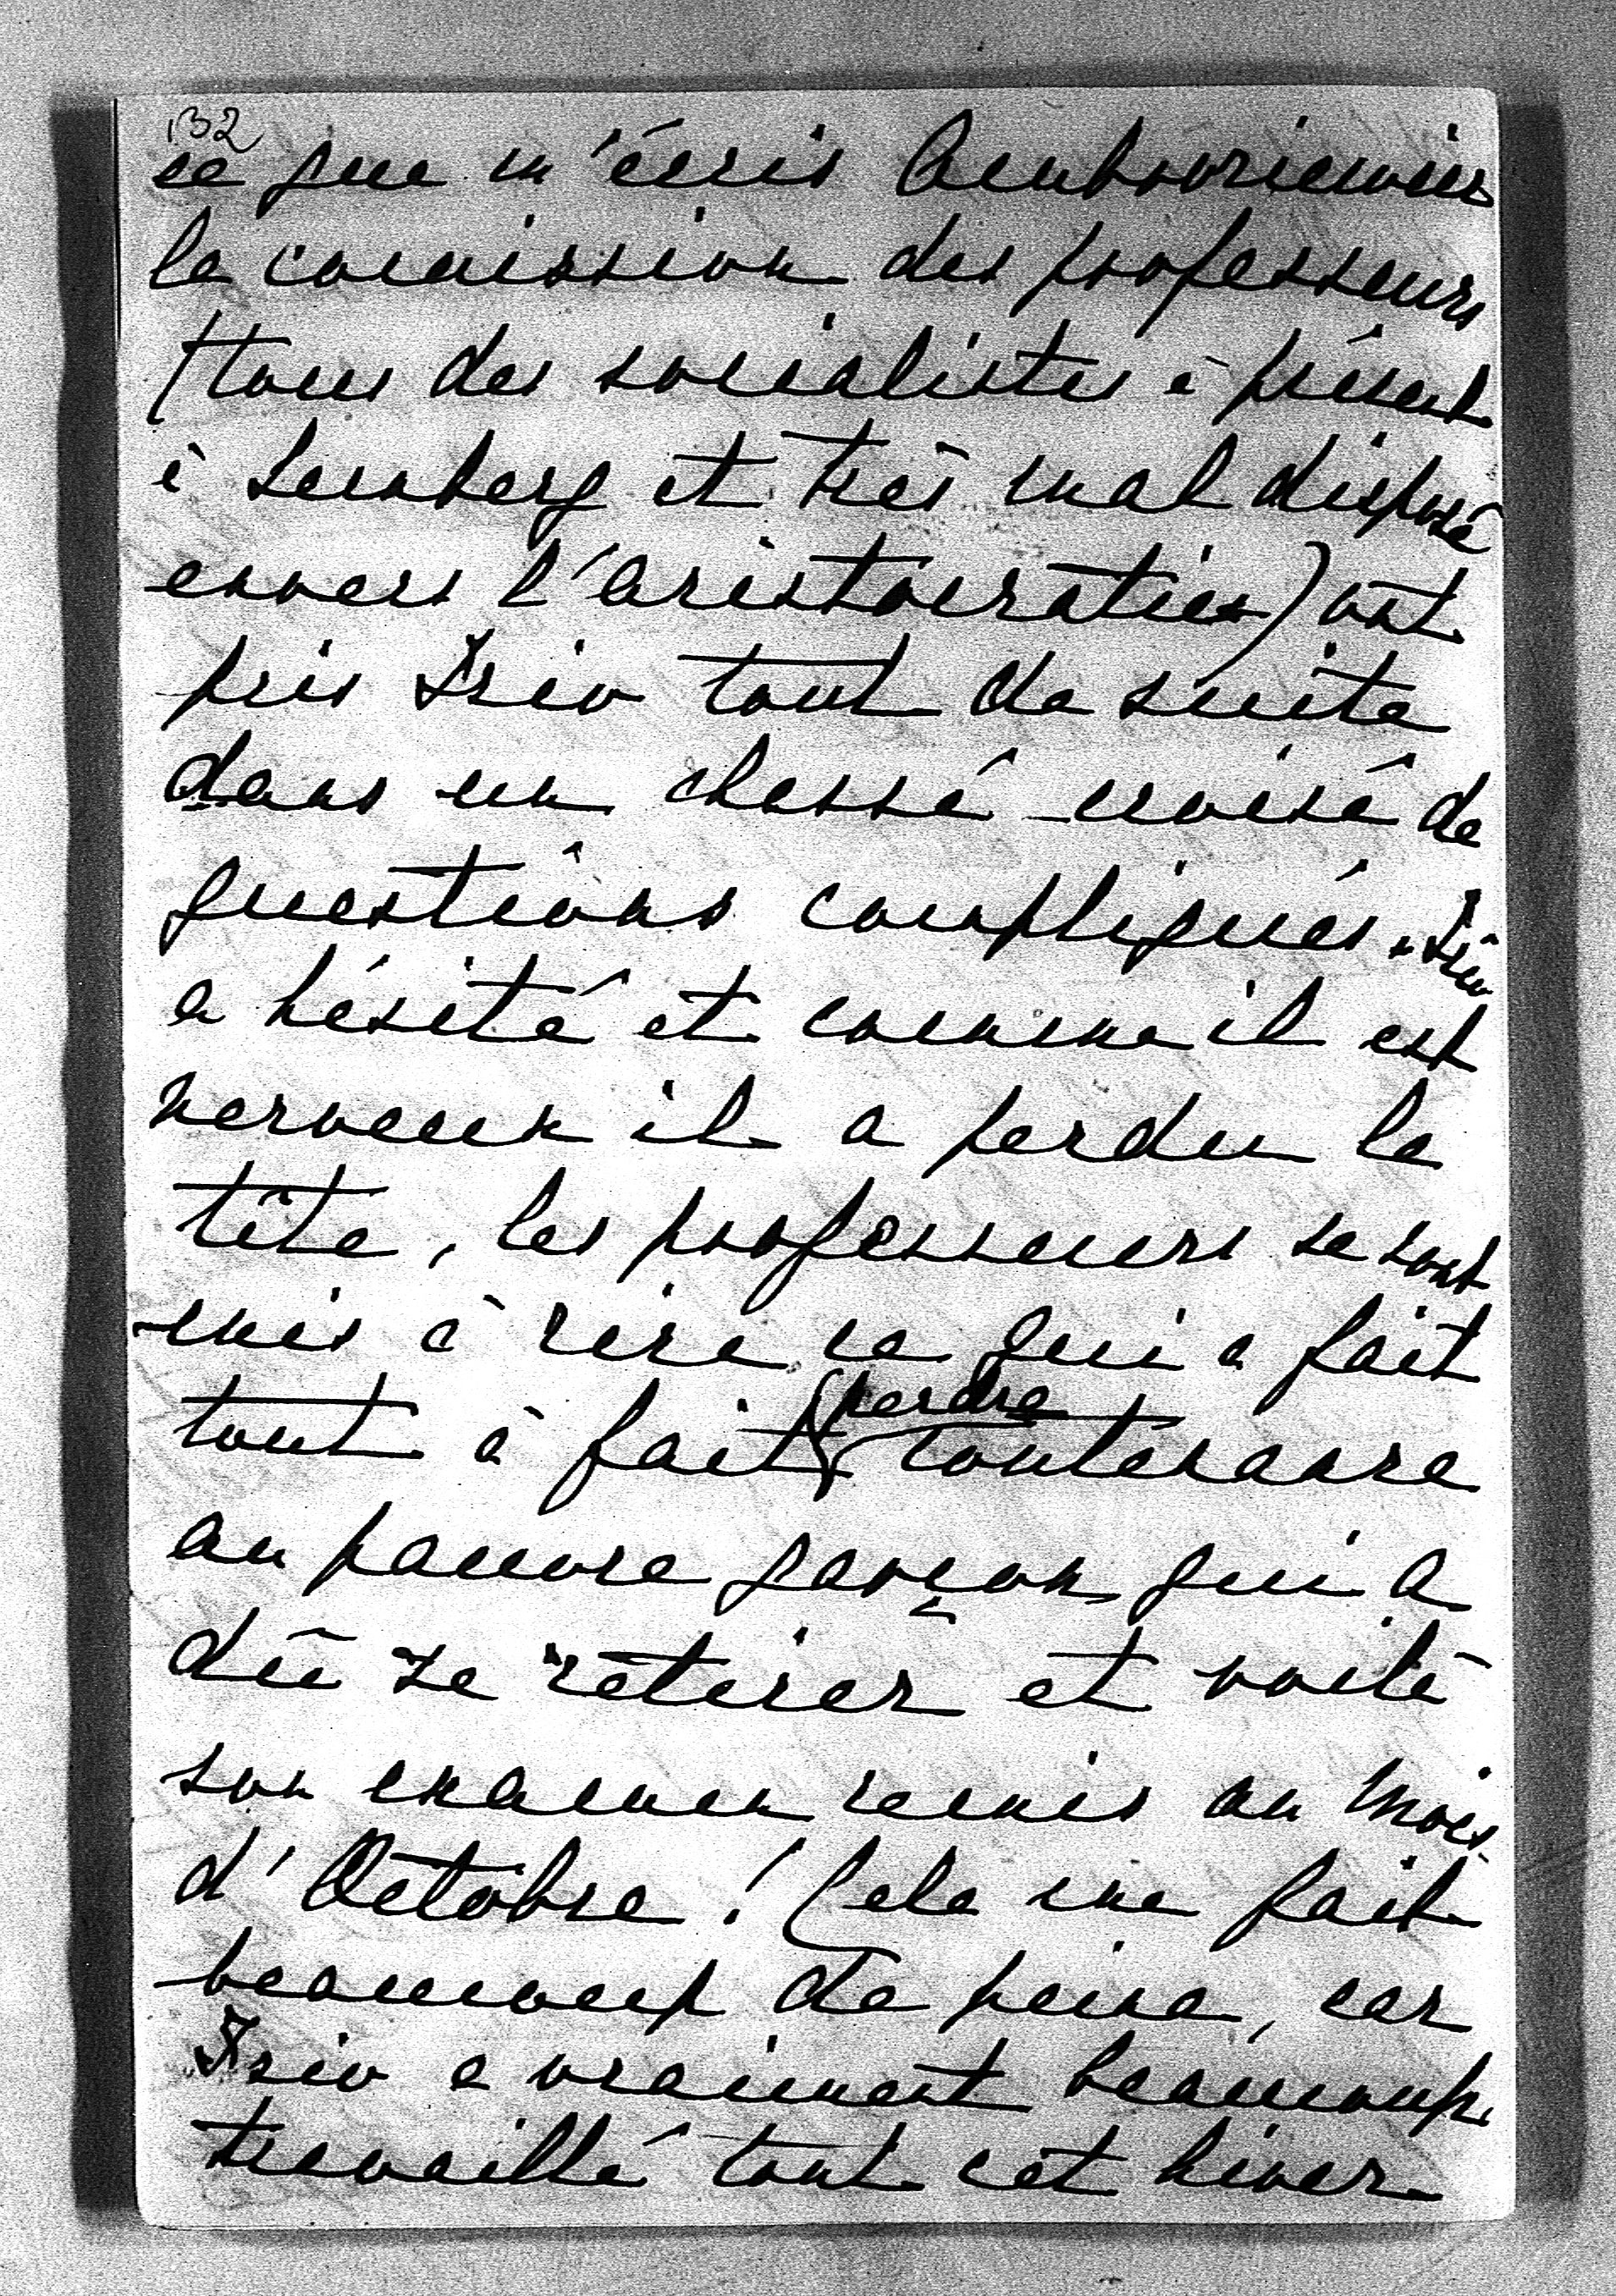 132
ce que m'écris
la comission des professeurs
(tous des socialistes à présent
à Lemberg et très mal disposé
envers l'aristocratie) ont
pris Izio tout de suite
dans un chassé-croisé de
questions compliqués. Izio
a hésité et comme il est
nerveux il a perdu la
tête, les professeurs se sont
mis à rire ce qui a fait
tout à fait perdre contenance
au pauvre garçon qui a
dû se retirer et voilà
son examen remis au mois
d'Octobre! Cela me fait
beaucoup de peine, car
Izio a vraiment beaucoup
travaillé tout cet hiver